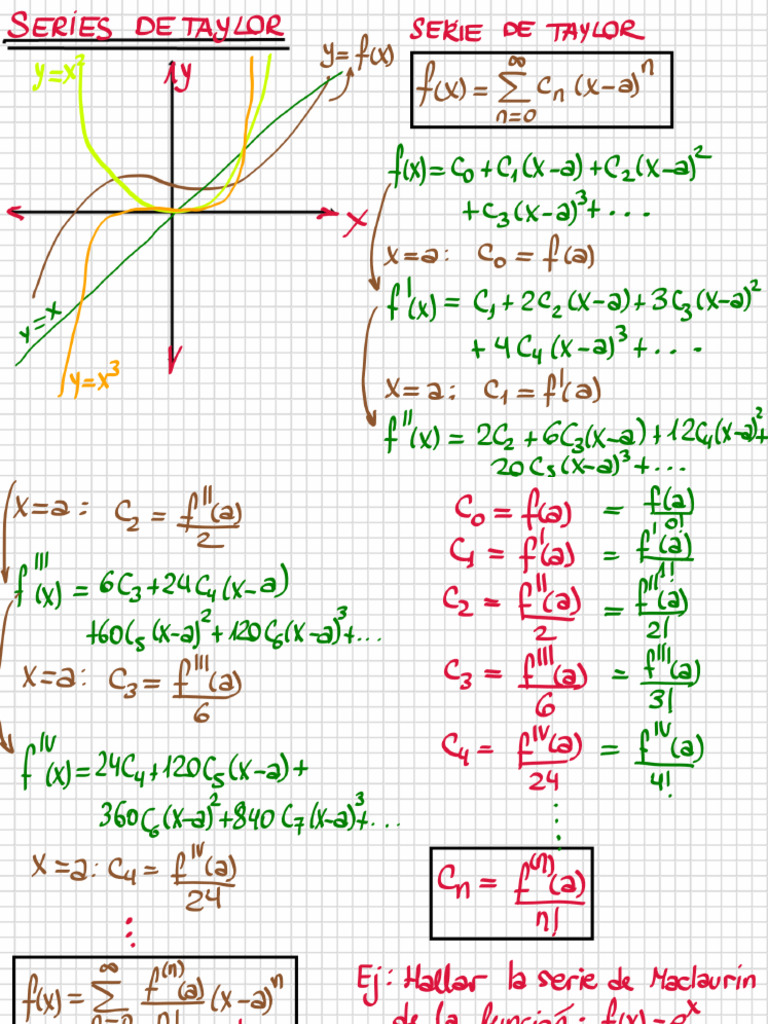 SERIES DE TAYLOR
y=x²
y
y=f(x)
x
y=x
y=x³
SERIE DE TAYLOR
f(x) = ∑_{n=0}^{∞} Cₙ (x-a)ⁿ
f(x) = C₀ + C₁(x-a) + C₂(x-a)²
+ C₃(x-a)³ + ...
x=a: C₀ = f(a)
f'(x) = C₁ + 2C₂(x-a) + 3C₃(x-a)²
+ 4C₄(x-a)³ + ...
x=a: C₁ = f'(a)
f''(x) = 2C₂ + 6C₃(x-a) + 12C₄(x-a)² +
20C₅(x-a)³ + ...
x=a: C₂ = f''(a)/2
f'''(x) = 6C₃ + 24C₄(x-a)
+60C₅(x-a)² + 120C₆(x-a)³ + ...
x=a: C₃ = f'''(a)/6
f^{IV}(x) = 24C₄ + 120C₅(x-a) +
360C₆(x-a)² + 840C₇(x-a)³ + ...
x=a: C₄ = f^{IV}(a)/24
⋮
f(x) = ∑_{n=0}^{∞} f^{(n)}(a)/n! (x-a)ⁿ
C₀ = f(a) = f(a)/0!
C₁ = f'(a) = f'(a)/1!
C₂ = f''(a)/2 = f''(a)/2!
C₃ = f'''(a)/6 = f'''(a)/3!
C₄ = f^{IV}(a)/24 = f^{IV}(a)/4!
⋮
Cₙ = f^{(n)}(a)/n!
Ej: Hallar la serie de Maclaurin
de la función: f(x) = eˣ